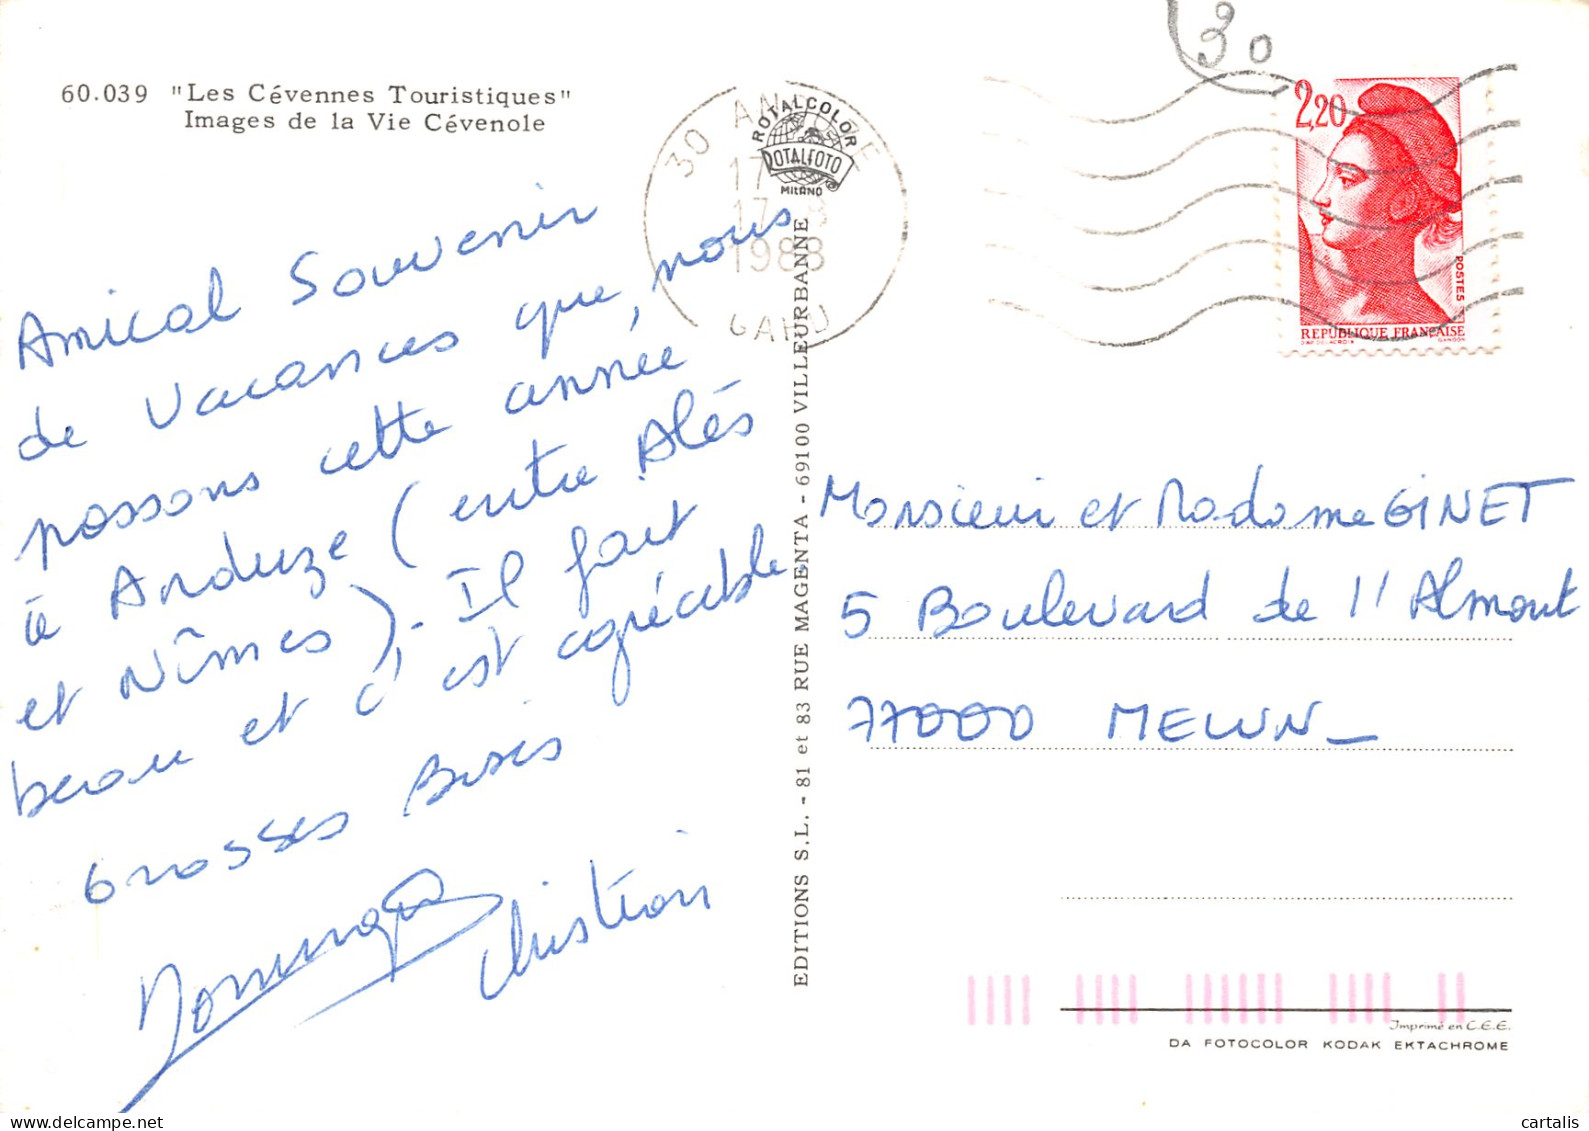 60.039 "Les Cévennes Touristiques"
Images de la Vie Cévenole
Amical Souvenir
de vacances que, nous
passons cette année
à Anduze (entre Alés
et Nîmes). Il fait
beau et c'est agréable
Grosses Bises
Dominique
Christian
30 ANDUZE
17
17-8
1988
GARD
ROTALCOLOR
ROTALFOTO
MILANO
30
2,20
POSTES
REPUBLIQUE FRANÇAISE
D'AP. DELACROIX GANDON
EDITIONS S.L. - 81 et 83 RUE MAGENTA - 69100 VILLEURBANNE
Monsieur et Madame GINET
5 Boulevard de l'Almont
77000 MELUN_
Imprimé en C.E.E.
DA FOTOCOLOR KODAK EKTACHROME
cartalis